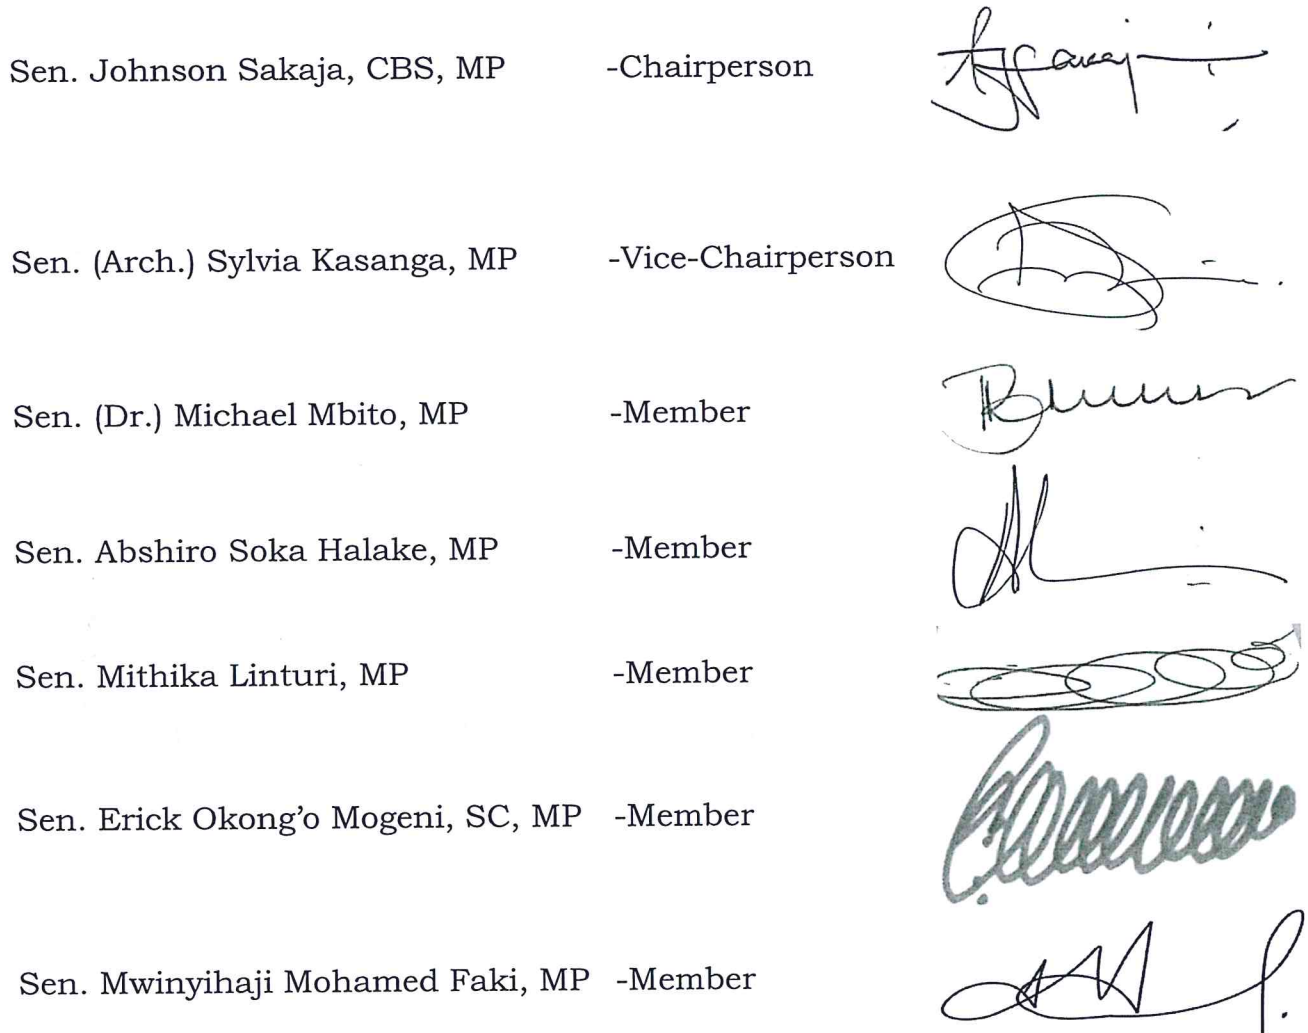 Sen. Johnson Sakaja, CBS, MP -Chairperson
Sen. (Arch.) Sylvia Kasanga, MP -Vice-Chairperson
Sen. (Dr.) Michael Mbito, MP -Member
Sen. Abshiro Soka Halake, MP -Member
Sen. Mithika Linturi, MP -Member
Sen. Erick Okong'o Mogeni, SC, MP -Member
Sen. Mwinyihaji Mohamed Faki, MP -Member